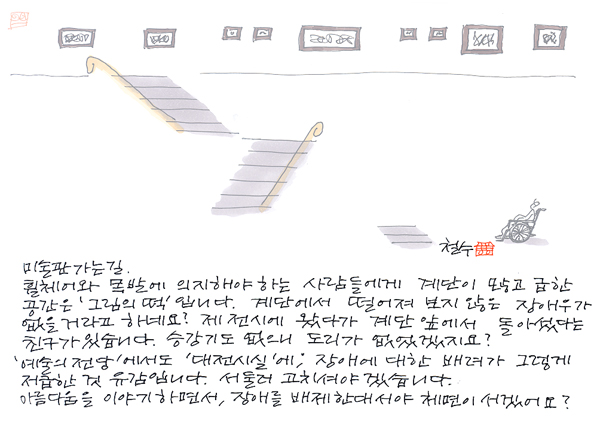 철수
미술관가는길.
휠체어와 목발에 의지해야 하는 사람들에게 계단이 많고 급한
공간은 '그림의 떡'입니다. 계단에서 떨어져 보지 않은 장애우가
없을거라고 하데요? 제 전시에 왔다가 계단 앞에서 돌아섰다는
친구가 있습니다. 승강기도 없으니 도리가 없었겠지요?
'예술의 전당'에서도 '대전시실'에; 장애에 대한 배려가 그렇게
저급한 것 유감입니다. 서둘러 고치셔야겠습니다.
아름다움을 이야기하면서, 장애를 배제한대서야 체면이 서겠어요?